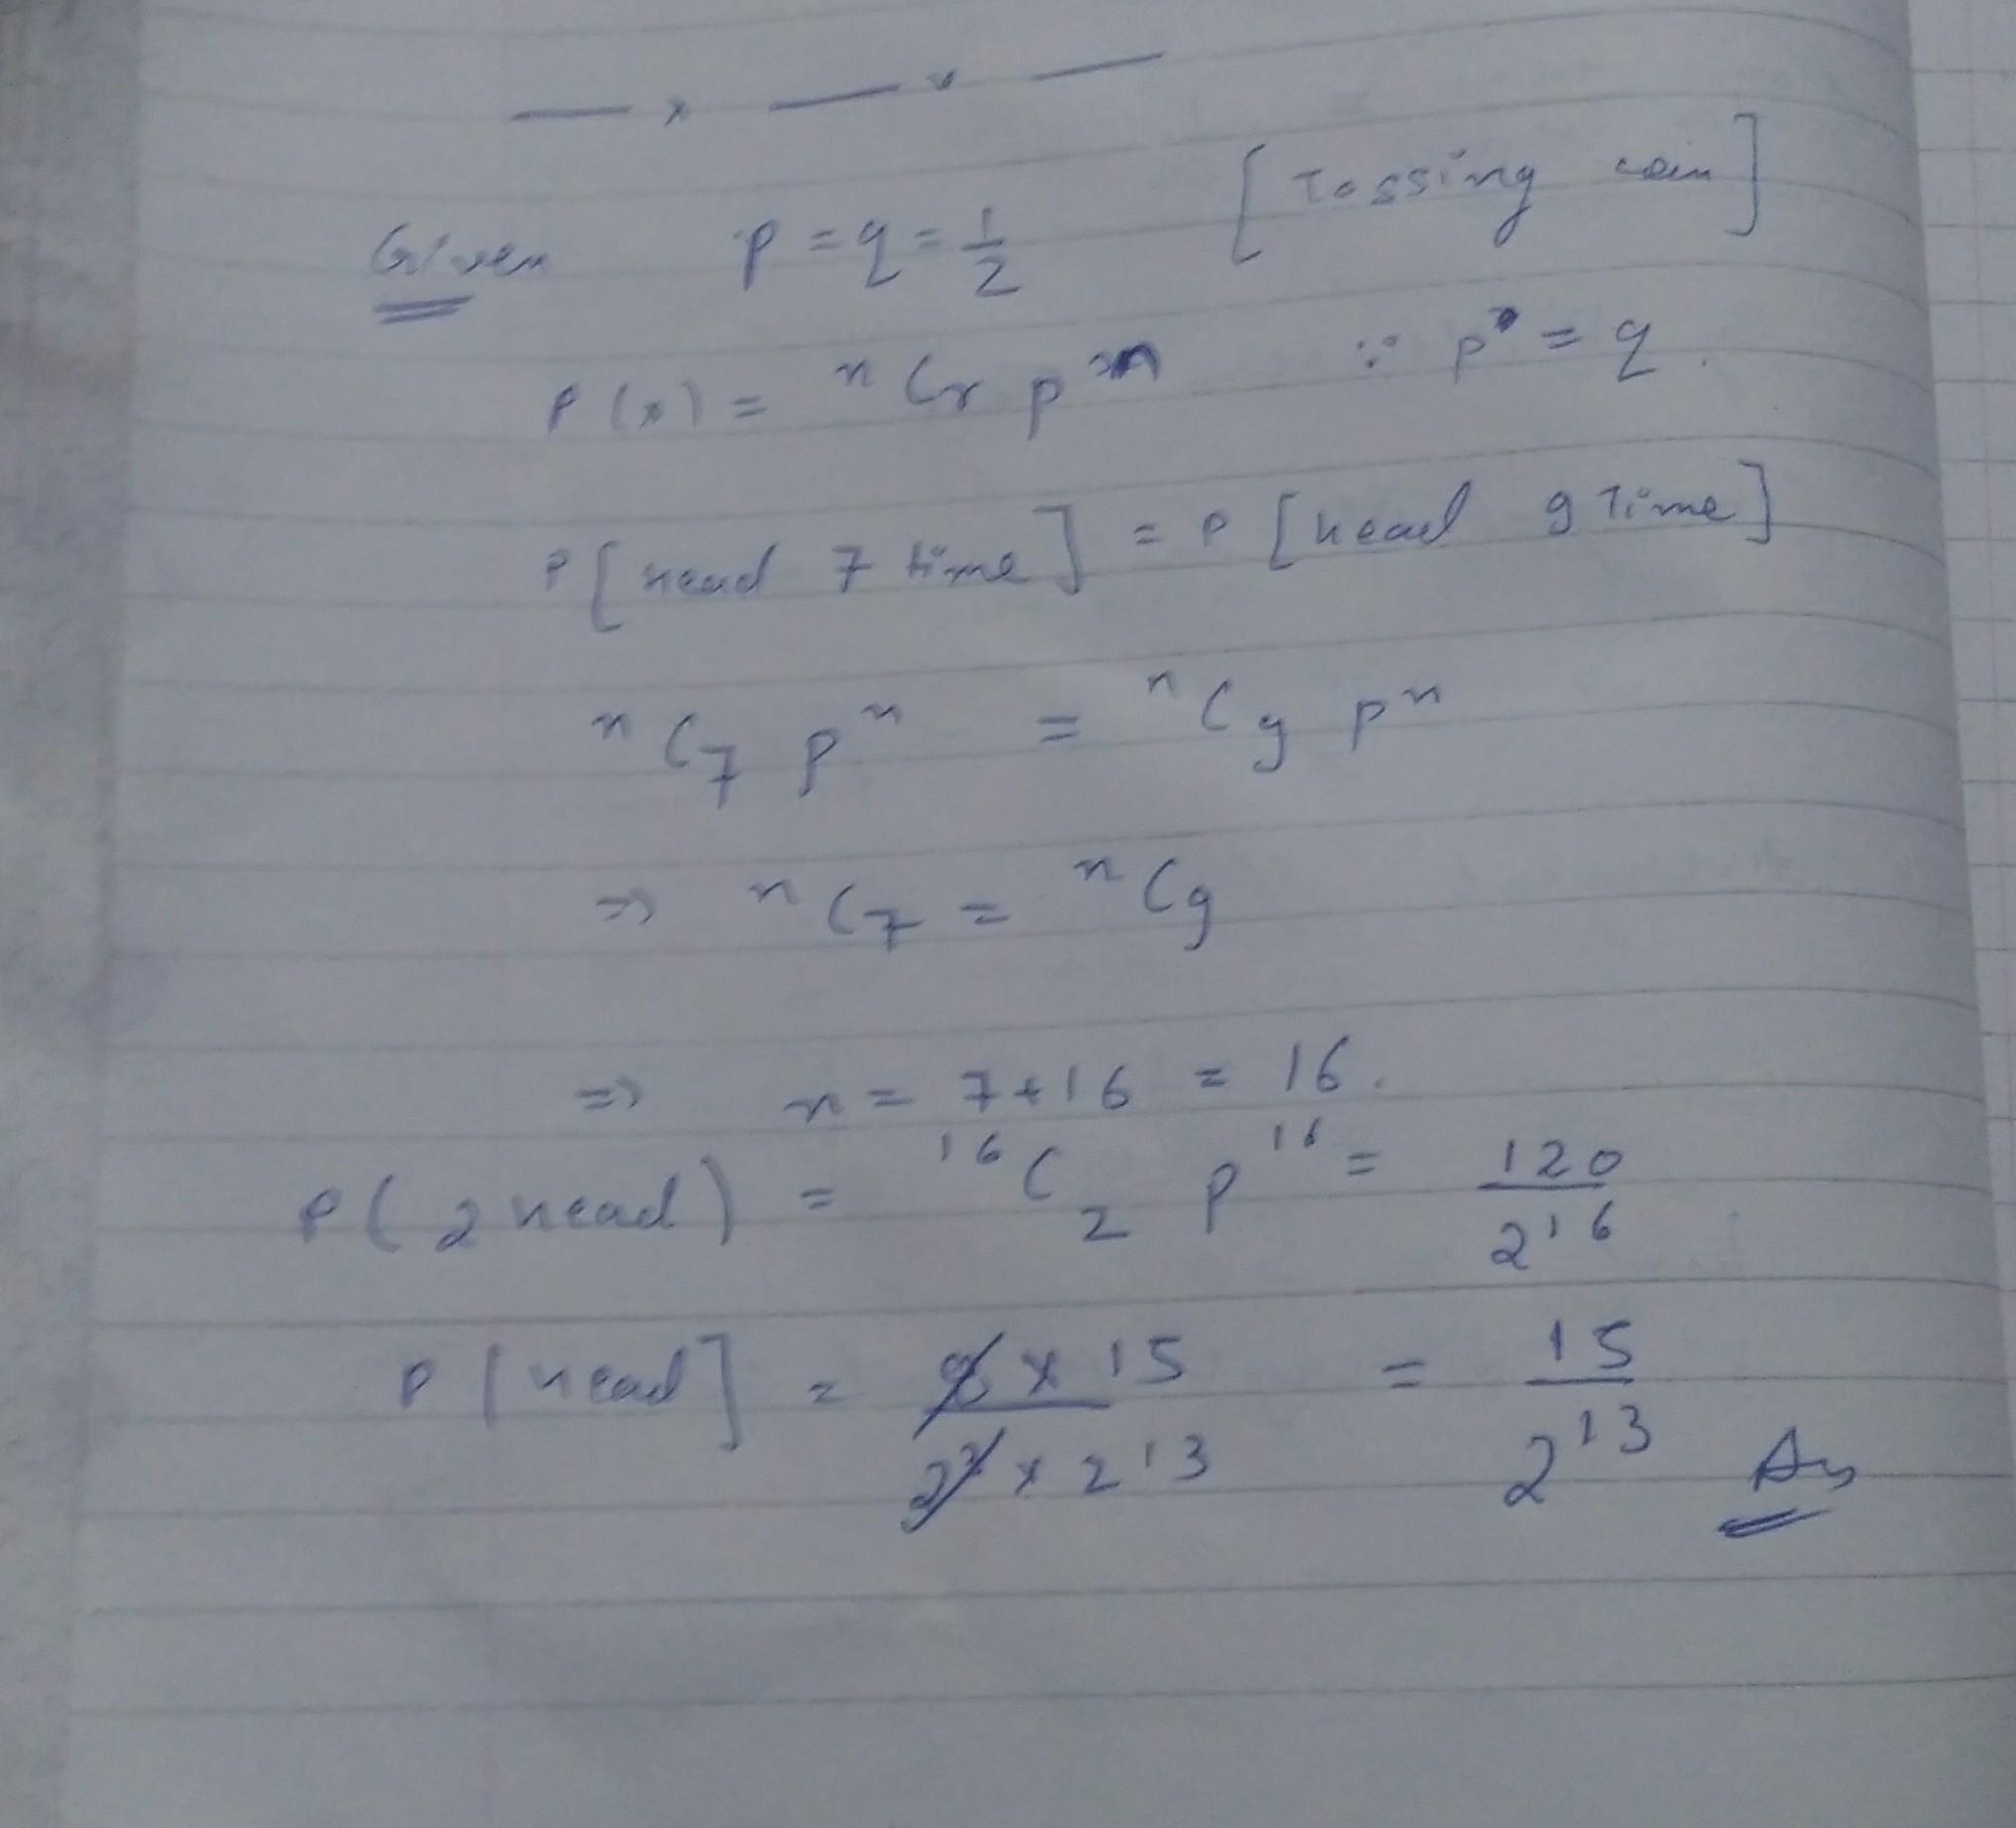 — x — x —
Given p = q = 1/2 [Tossing coin]
P(x) = ⁿCr pⁿ ∵ p = q.
P[head 7 time] = P[head 9 Time]
ⁿC₇ pⁿ = ⁿC₉ pⁿ
⇒ ⁿC₇ = ⁿC₉
⇒ n = 7+16 = 16.
P(2 head) = ¹⁶C₂ p¹⁶ = 120/2¹⁶
P[head] = 8 x 15/2³ x 2¹³ = 15/2¹³ Ans